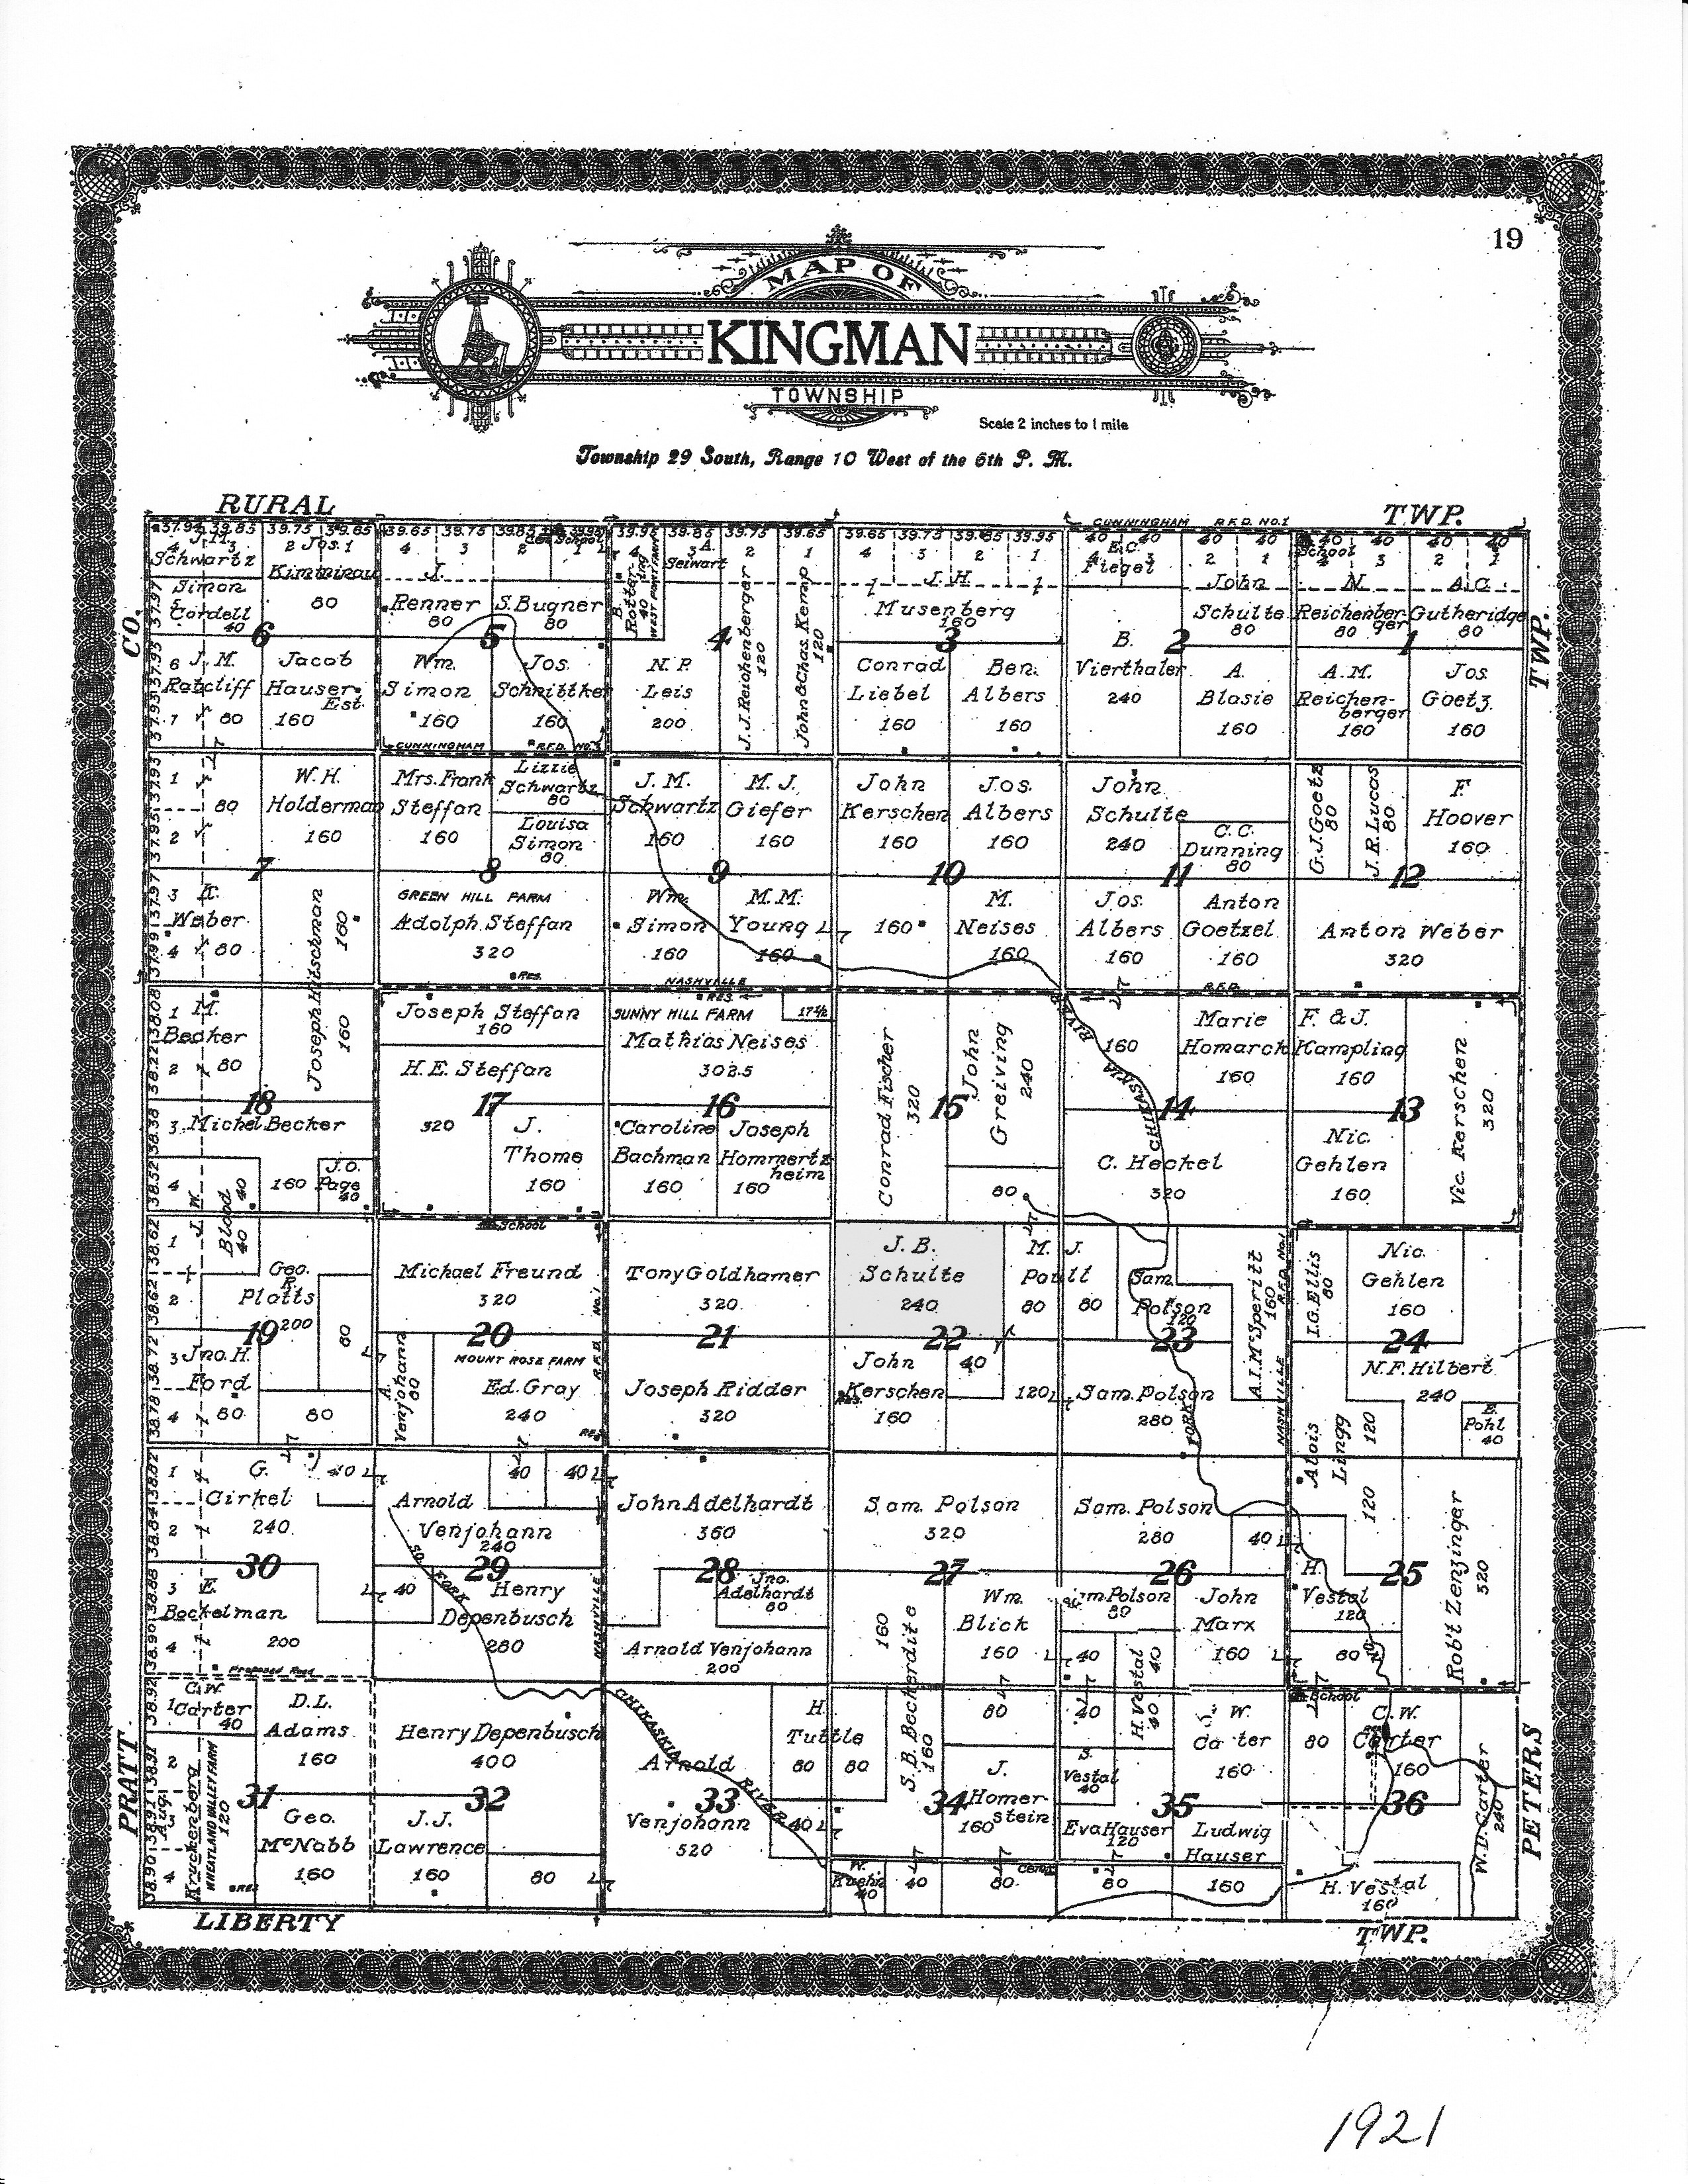 19
MAP OF
KINGMAN
TOWNSHIP
Scale 2 inches to 1 mile
Township 29 South, Range 10 West of the 6th P. M.
RURAL
TWP.
CUNNINGHAM R.F.D. NO.1
37.94 39.85 39.75 39.65
39.65 39.75 39.85
39.95 39.85 39.75 39.65
39.65 39.75 39.85 39.95
40 40 40 40
40 40 40 40
CO.
TWP.
J.M. Schwartz
Jos. Kimmirau
80
Simon Cordell
40
6
J. M. Ratcliff
80
Jacob Hauser Est.
160
J. Renner
80
S. Bugner
80
5
Wm. Simon
160
Jos. Schnittker
160
CUNNINGHAM R.F.D. NO.
A. Seiwart
WEST POINT FARM
40
4
J.J. Reichenberger
120
John & Chas. Kemp
120
N. P. Leis
200
J. H. Musenberg
160
3
Conrad Liebel
160
Ben. Albers
160
E.C. Fiegel
B. Vierthaler
240
2
John Schulte
80
A. Blasie
160
School
N. Reichenberger
80
A.C. Gutheridge
80
1
A. M. Reichenberger
160
Jos. Goetz
160
80
W. H. Holderman
160
7
Weber
80
Joseph Hitschman
160
160
Mrs. Frank Steffan
160
Lizzie Schwartz
80
Louisa Simon
80
8
GREEN HILL FARM
Adolph Steffan
320
RES.
J. M. Schwartz
160
M. J. Giefer
160
9
Wm. Simon
160
M. M. Young
160
NASHVILLE
John Kerschen
160
Jos. Albers
160
10
160
M. Neises
160
John Schulte
240
C. C. Dunning
80
11
Jos. Albers
160
Anton Goetzel
160
R.F.D.
G.J. Goetz
80
J.R. Lucas
80
F. Hoover
160
12
Anton Weber
320
M. Becker
80
18
Michel Becker
160
J.O. Page
40
J. W. Blood
40
40
Joseph Steffan
160
H. E. Steffan
320
17
J. Thome
160
School
RES.
SUNNY HILL FARM
17½
Mathias Neises
302.5
16
Caroline Bachman
160
Joseph Hommertzheim
160
Conrad Fischer
320
15
John Greiving
240
80
RIVER
CHIKASKIA
160
Marie Homarck
160
14
C. Heckel
320
F. & J. Kampling
160
13
Nic. Gehlen
160
Vic. Kerschen
320
Geo. R. Platts
200
19
80
Jno. H. Ford
80
80
Michael Freund
320
20
A. Venjohann
80
MOUNT ROSE FARM
Ed. Gray
240
RES.
R.F.D. No. 1
Tony Goldhamer
320
21
Joseph Ridder
320
J. B. Schulte
240
22
John Kerschen
160
RES.
40
120
M. J. Poull
80
80
Sam. Polson
120
23
Sam. Polson
280
FORK
A.I. McSperitt
160
NASHVILLE R.F.D. No.1
I.G. Ellis
80
Nic. Gehlen
160
24
N. F. Hilbert
240
Pohl
40
Alois Lingg
120
120
G. Cirkel
240
40
30
E. Bockelman
200
Proposed Road
Arnold Venjohann
240
40
40
29
40
SO. FORK
Henry Depenbusch
280
NASHVILLE
John Adelhardt
360
28
Jno. Adelhardt
80
Arnold Venjohann
200
Sam. Polson
320
27
160
S. B. Beckerdite
160
Wm. Blick
160
Sam. Polson
280
40
26
Polson
80
40
H. Vestal
40
40
John Marx
160
H. Vestal
120
80
25
Rob't Zenzinger
320
C. W. Carter
40
D. L. Adams
160
31
Aug. Kruckenberg
WHEATLAND VALLEY FARM
120
RES.
Geo. McNabb
160
Henry Depenbusch
400
32
J. J. Lawrence
160
80
CHIKASKIA RIVER
Arnold Venjohann
33
520
H. Tuttle
80
80
40
W. Kuehn
40
40
80
34
J. Homerstein
160
80
40
S. Vestal
40
Eva Hauser
120
80
35
W. Carter
160
Ludwig Hauser
160
School
80
C. W. Carter
160
36
W. D. Carter
240
H. Vestal
160
PRATT
PETERS
LIBERTY
TWP.
1921